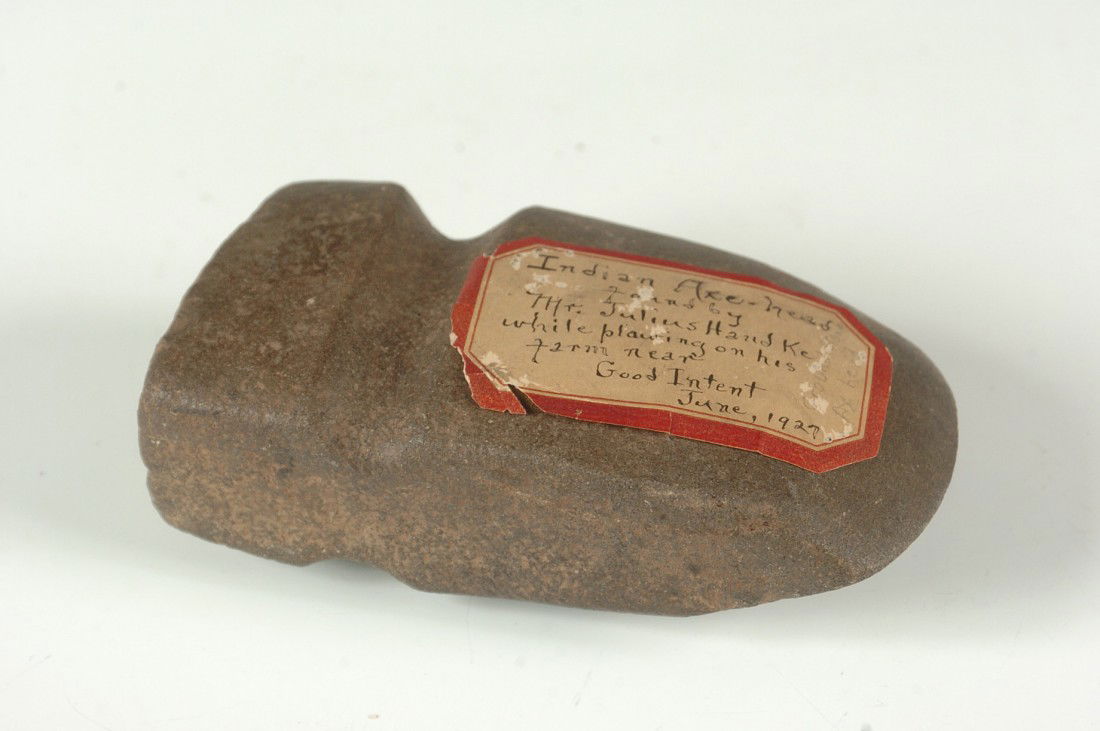 Indian Axe-head
Found by
Mr. Julius Handke
while plawing on his
farm near
Good Intent
June, 1927